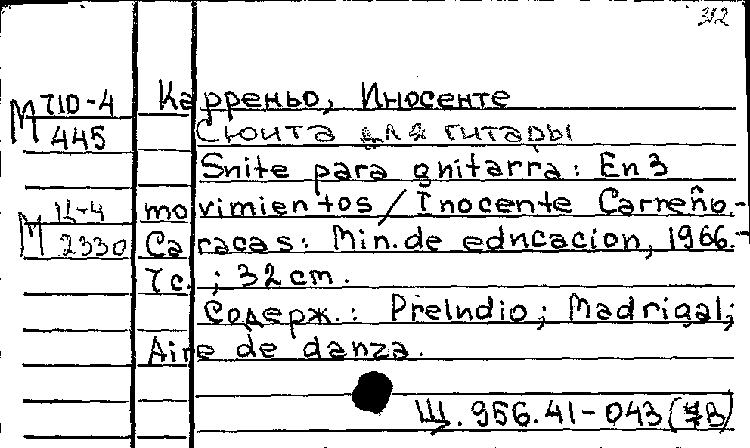 312
М 710-4
445
Карреньо, Иносенте
Сюита для гитары
Snite para gnitarra: En 3
movimientos / Inocente Carreño.-
М Ц-4
2330
Caracas: Min. de edncacion, 1966.-
7 с. ; 32 cm.
Содерж.: Prelndio; Madrigal;
Aire de danza.
Щ. 956.41-043(7В)